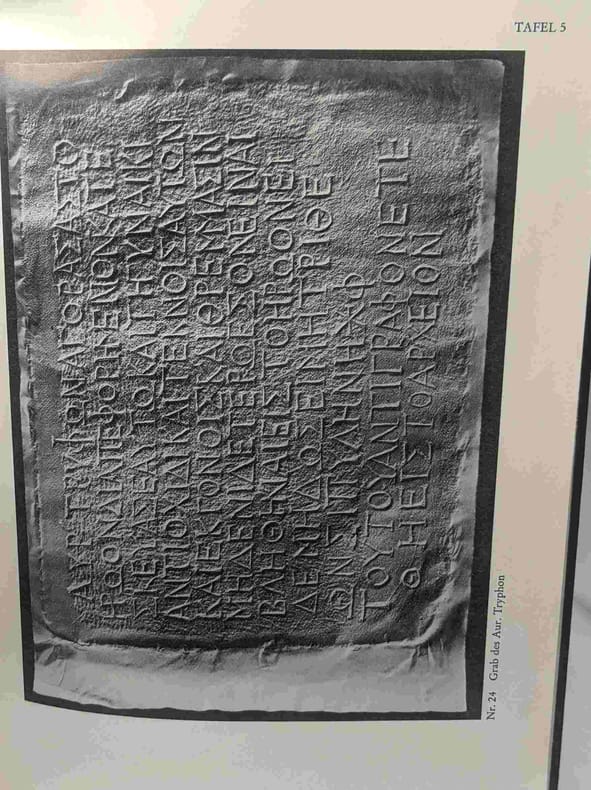 TAFEL 5
ΑΥΡ ΤΡΥΦΩΝΑΓΟΡΑΣΑΣΤΟ
ΗΡΟΟΝΔΙΑΠΕΦΟΡΗΜΕΝΟΝΚΑΤΕ
ΣΚΕΥΑΣΕΑΥΤΟΚΑΙΤΗΓΥΝΑΙΚΙ
ΑΝΤΙΟΧΙΔΙΚΑΙΤΕΚΝΟΙΣΑΥΤΩΝ
ΚΑΙΕΚΓΟΝΟΙΣΚΑΙΘΡΕΜΑΣΙΝ
ΜΗΔΕΝΙΔΕΕΤΕΡΟΕΞΟΝΕΙΝΑΙ
ΒΛΗΘΗΝΑΙΕΙΣΤΟΗΡΟΟΝΕΙ
ΔΕΜΗΔΩΣΕΙΝΗΤΡΙΘΕ
ΤΟΥΤΟΥΑΝΤΙΓΡΑΦΟΝΕΤΕ
ΘΗΕΙΣΤΟΑΡΧΕΙΟΝ
Nr. 24 Grab des Aur. Tryphon